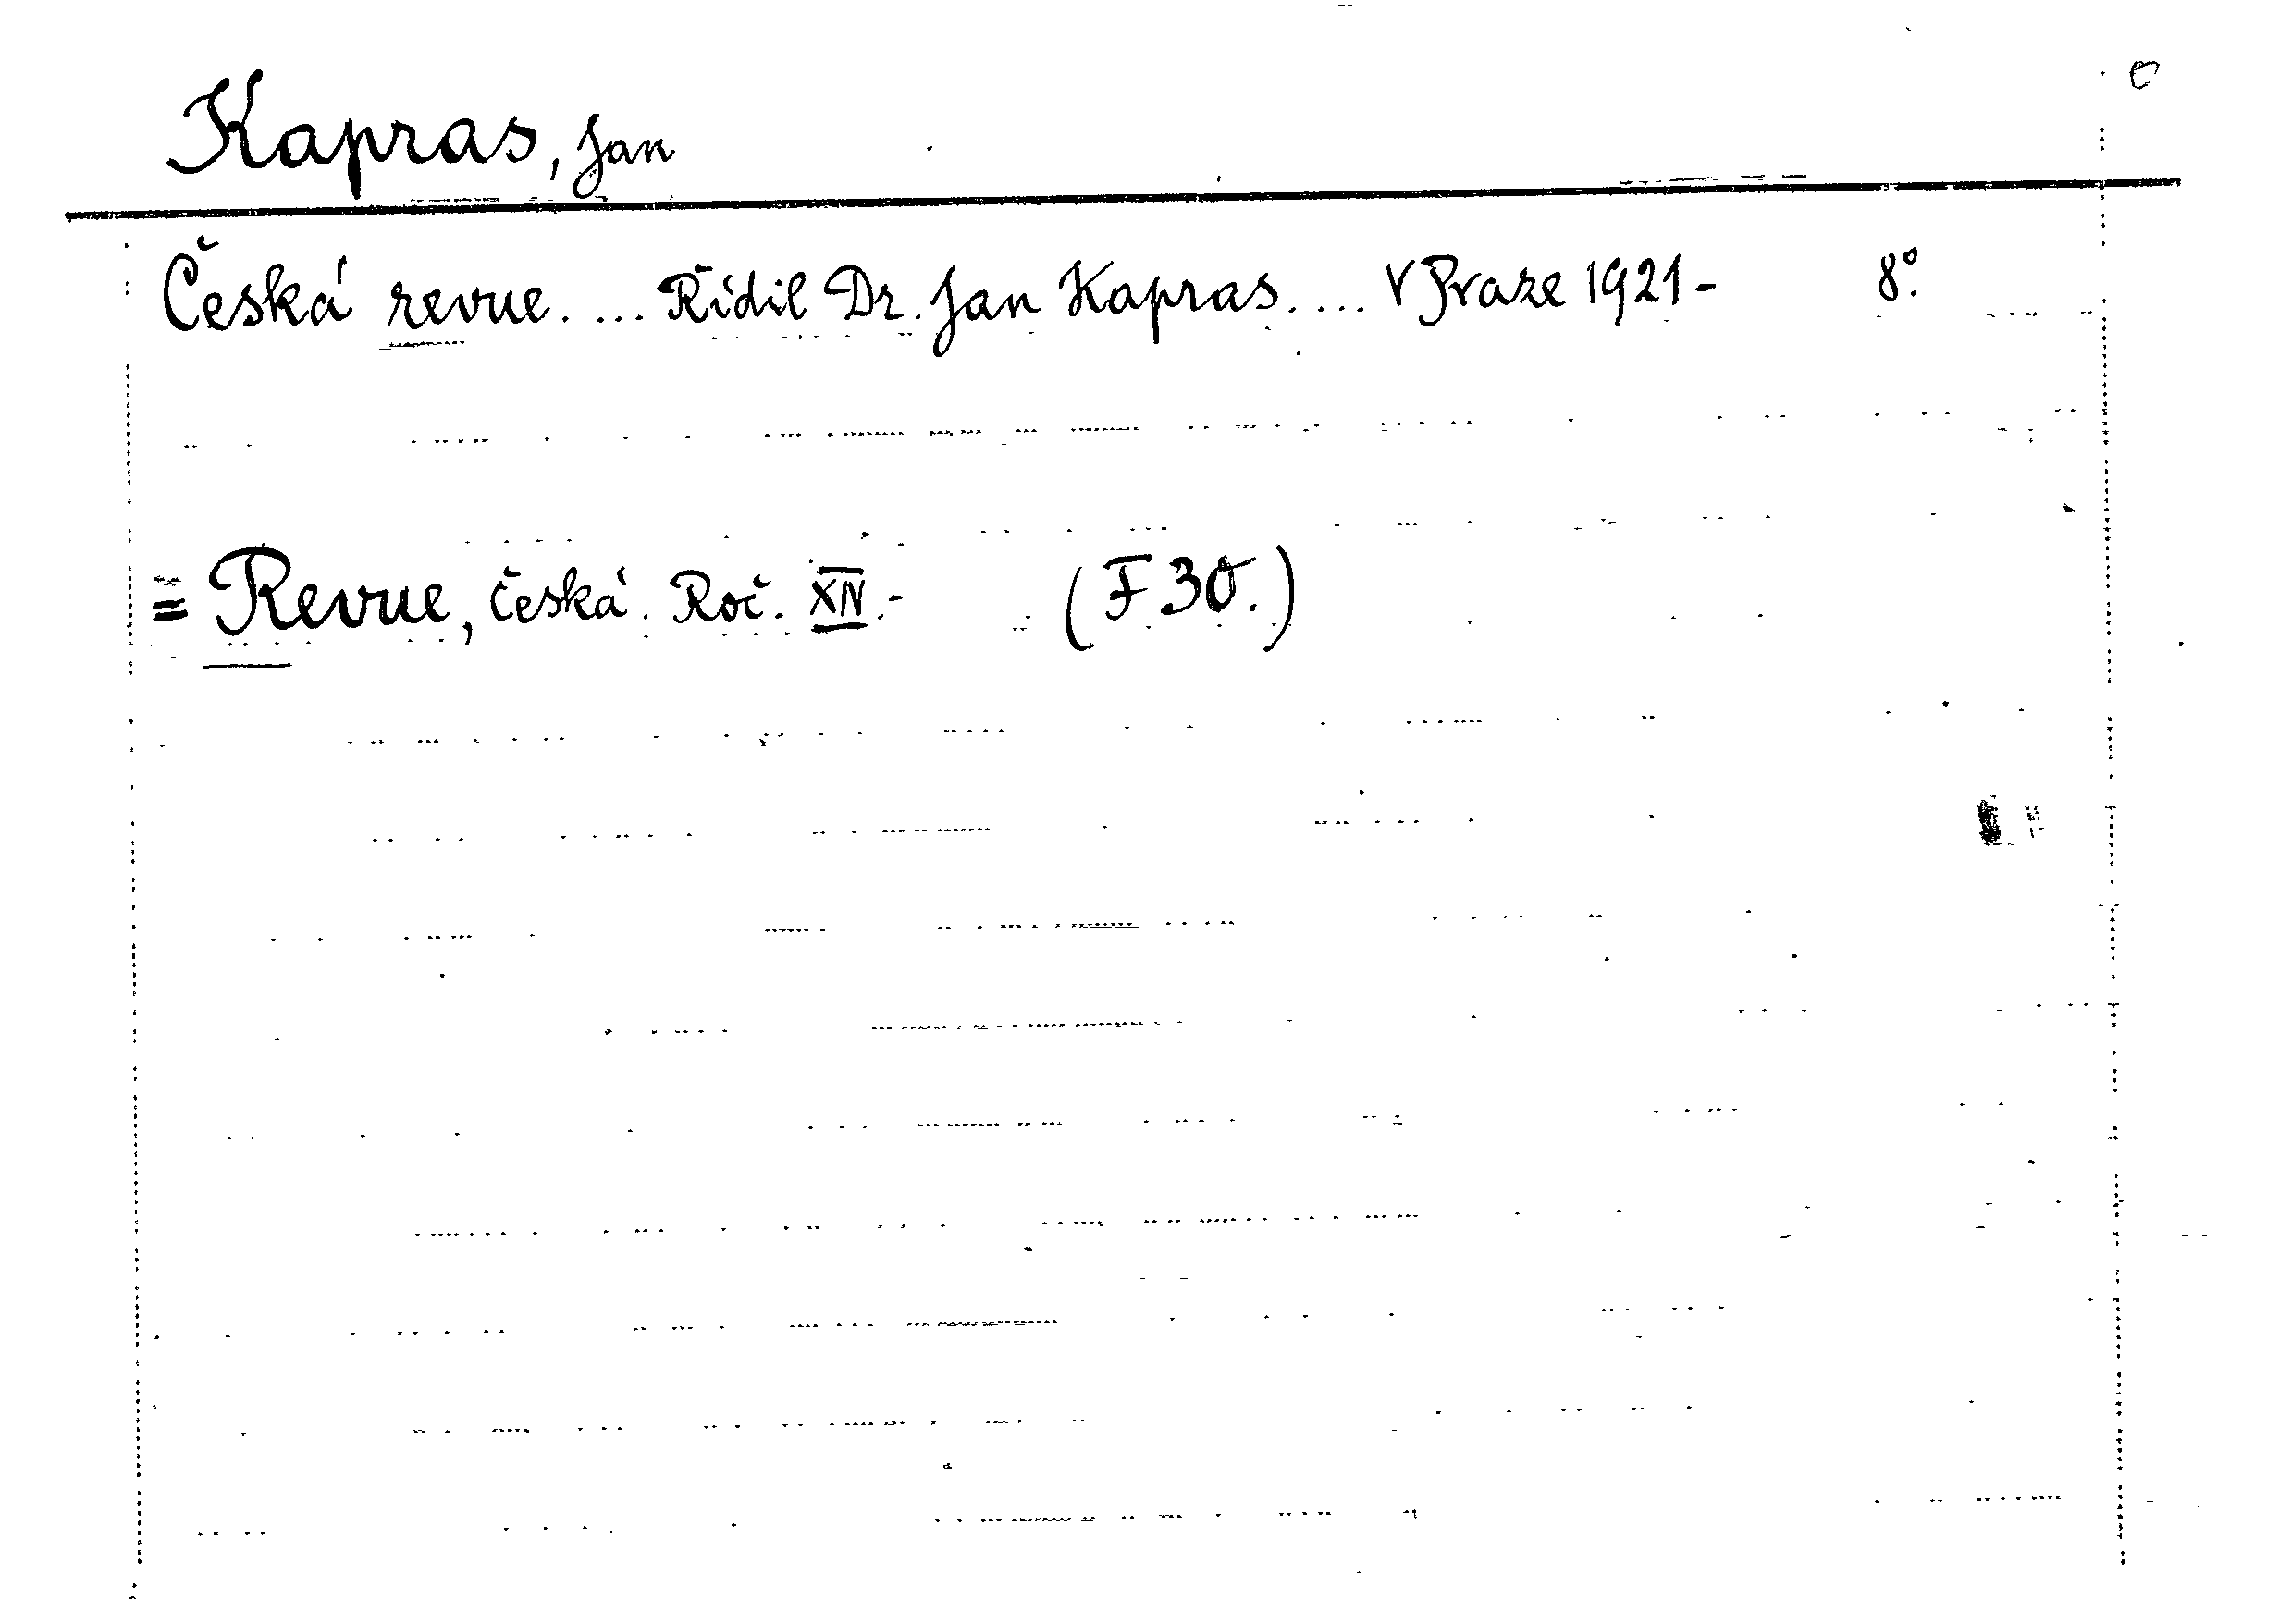 Kapras, Jan
Česká revue. ... Řídil Dr. Jan Kapras. ... V Praze 1921- 8°.
= Revue, česká. Roč. XIV.- (F 30.)